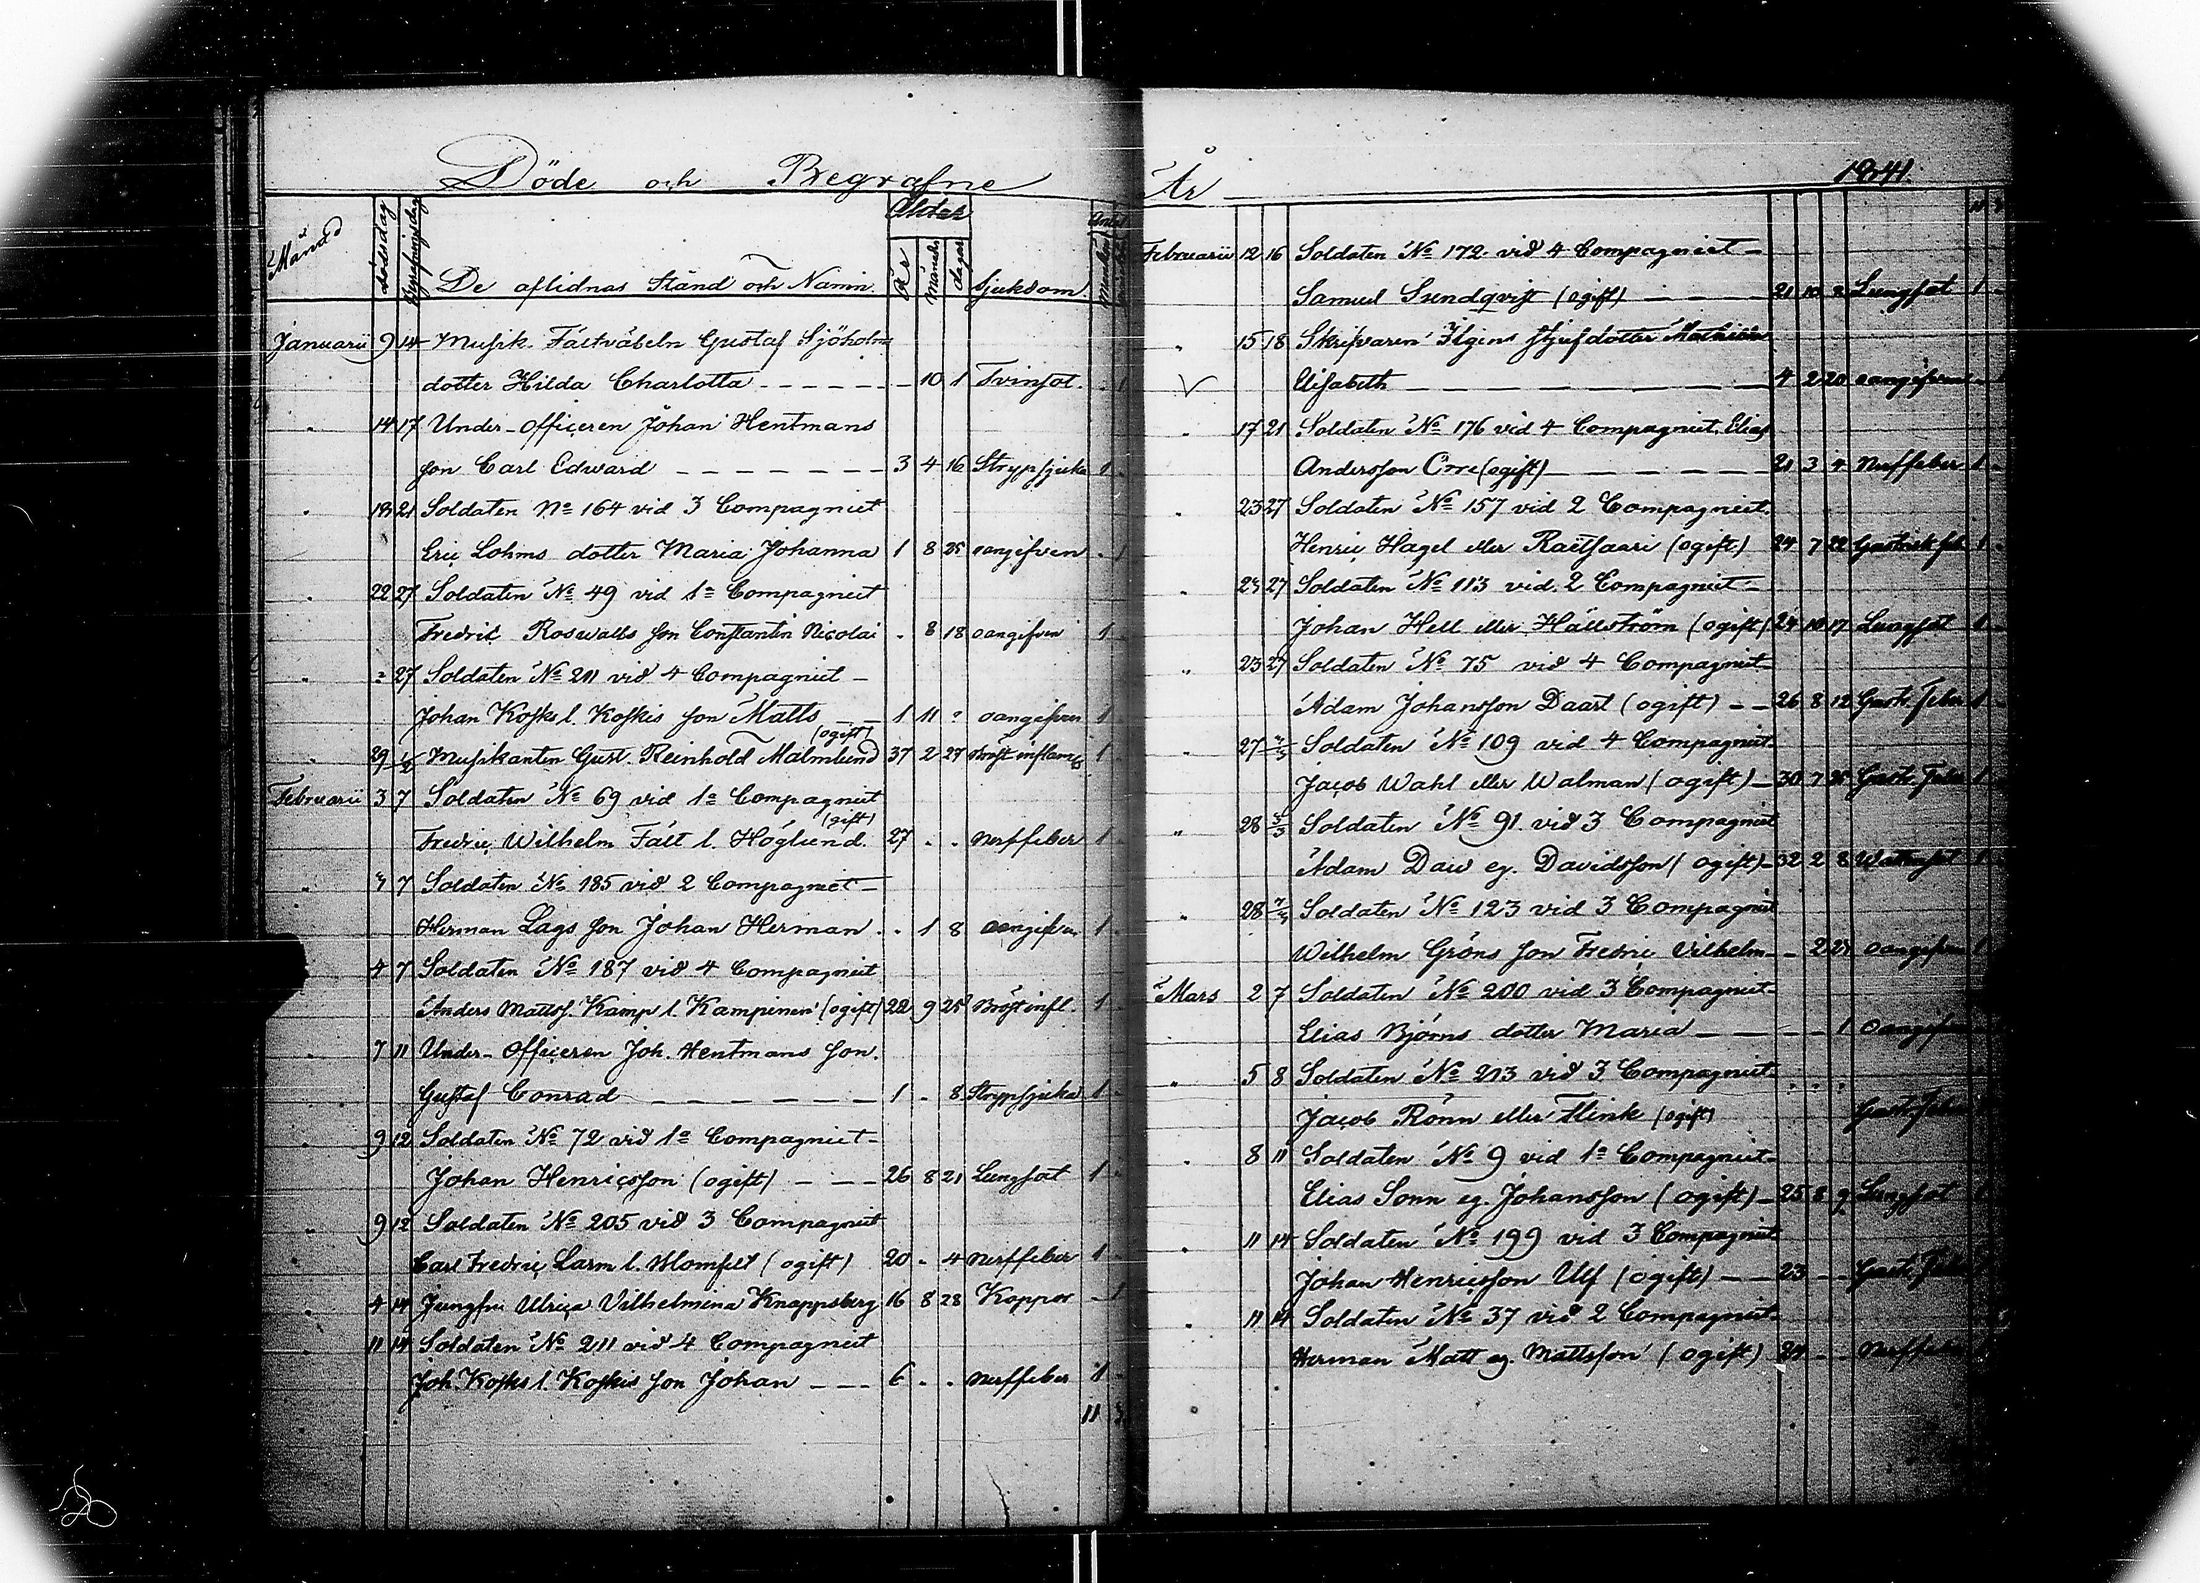 Döde och Begrafne
Månad Dödsdag Begrafningsdag De aflidnas Stånd och Namn. Ålder År Månader dagar Sjukdom. Antal Mankön
Januarii 9 14 Musik. Fältväbeln Gustaf Sjöholms
dotter Hilda Charlotta - - - - - - - 10 1 Tvinsot. . 1
" 14 17 Under-Officeren Johan Hentmans
son Carl Edward - - - - - - - 3 4 16 Strypsjuka 1 .
" 18 21 Soldaten No 164 vid 3 Compagniet
Eric Lohms dotter Maria Johanna 1 8 25 oangifven . 1
" 22 27 Soldaten No 49 vid 1a Compagniet
Fredric Roswalls son Constantin Nicolai . 8 18 oangifven 1 .
" " 27 Soldaten No 211 vid 4 Compagniet -
Johan Koskel. Koskis son Matts - - 1 11 " oangifven 1 .
(ogift)
" 29 1/2 Musikanten Gust. Reinhold Malmlund 37 2 27 Bröst inflam 1 .
Februarii 3 7 Soldaten No 69 vid 1a Compagniet
(gift)
Fredric Wilhelm Fält l. Höglund. 27 . . Nerffeber 1 .
" 3 7 Soldaten No 185 vid 2 Compagniet -
Herman Lags son Johan Herman . . 1 8 oangifven 1 .
4 7 Soldaten No 187 vid 4 Compagniet
Anders Mattss. Kamp l. Kampinen (ogift) 22 9 25 Bröst infl. 1 .
" 7 11 Under-Officeren Joh. Hentmans son.
Gustaf Conrad - - - - - - - 1 . 8 Strypsjuka 1 .
" 9 12 Soldaten No 72 vid 1a Compagniet -
Johan Henricsson (ogift) - - - 26 8 21 Lungsot 1 .
" 9 12 Soldaten No 205 vid 3 Compagniet
Carl Fredric Larm l. Blomfelt (ogift) 20 . 4 Nerffeber 1 .
" 4 14 Jungfru Ulrica Vilhelmina Knappsberg 16 8 28 Koppor - 1
11 14 Soldaten No 211 vid 4 Compagniet
Joh. Koskel. Koskis son Johan - - - 6 . . Nerffeber 1 .
11
År 1841.
Februarii 12 16 Soldaten No 172 vid 4 Compagniet -
Samuel Sundqvist (ogift) - - - - 21 10 2 Lungsot 1 .
" 15 18 Skrifvaren Ilgins stjufdotter
Elisabeth - - - - 4 2 20 oangifven
" 17 21 Soldaten No 176 vid 4 Compagniet, Elias
Andersson Orre (ogift) - - - - 21 3 4 Nerffeber 1 .
" 23 27 Soldaten No 157 vid 2 Compagniet.
Henric Hagel eller Raitsaari (ogift) 24 7 22 Gastrisk feb 1
" 23 27 Soldaten No 113 vid 2 Compagniet -
Johan Hell eller Hällström (ogift) 24 10 17 Lungsot 1
" 23 27 Soldaten No 75 vid 4 Compagniet -
Adam Johansson Daart (ogift) - - 26 8 12 Gastr. Feber 1
" 27 Soldaten No 109 vid 4 Compagniet -
Jacob Wahl eller Walman (ogift) - 30 7 25 Gastr. Feber 1
" 28 Soldaten No 91. vid 3 Compagniet
Adam Daw eg. Davidsson (ogift) - 32 2 8 Wattusot 1
" 28 Soldaten No 123 vid 3 Compagniet
Wilhelm Gröns son Fredric Vilhelm - . 2 27 oangifven 1
Mars 2 7 Soldaten No 200 vid 3 Compagniet -
Elias Björns dotter Maria - - - - 1 Oangifven
" 5 8 Soldaten No 213 vid 3 Compagniet - . . .
Jacob Rönn eller Flink (ogift) Gastr. Feber
" 8 11 Soldaten No 9 vid 1a Compagniet -
Elias Sonn eg. Johansson (ogift) - 25 8 9 Lungsot 1
" 11 14 Soldaten No 199 vid 3 Compagniet
Johan Henricsson Ulf (ogift) - - 23 - - Gastr. Feber
" 11 14 Soldaten No 37 vid 2 Compagniet -
Herman Matt eg. Mattsson (ogift) 24 - - Nerffeber